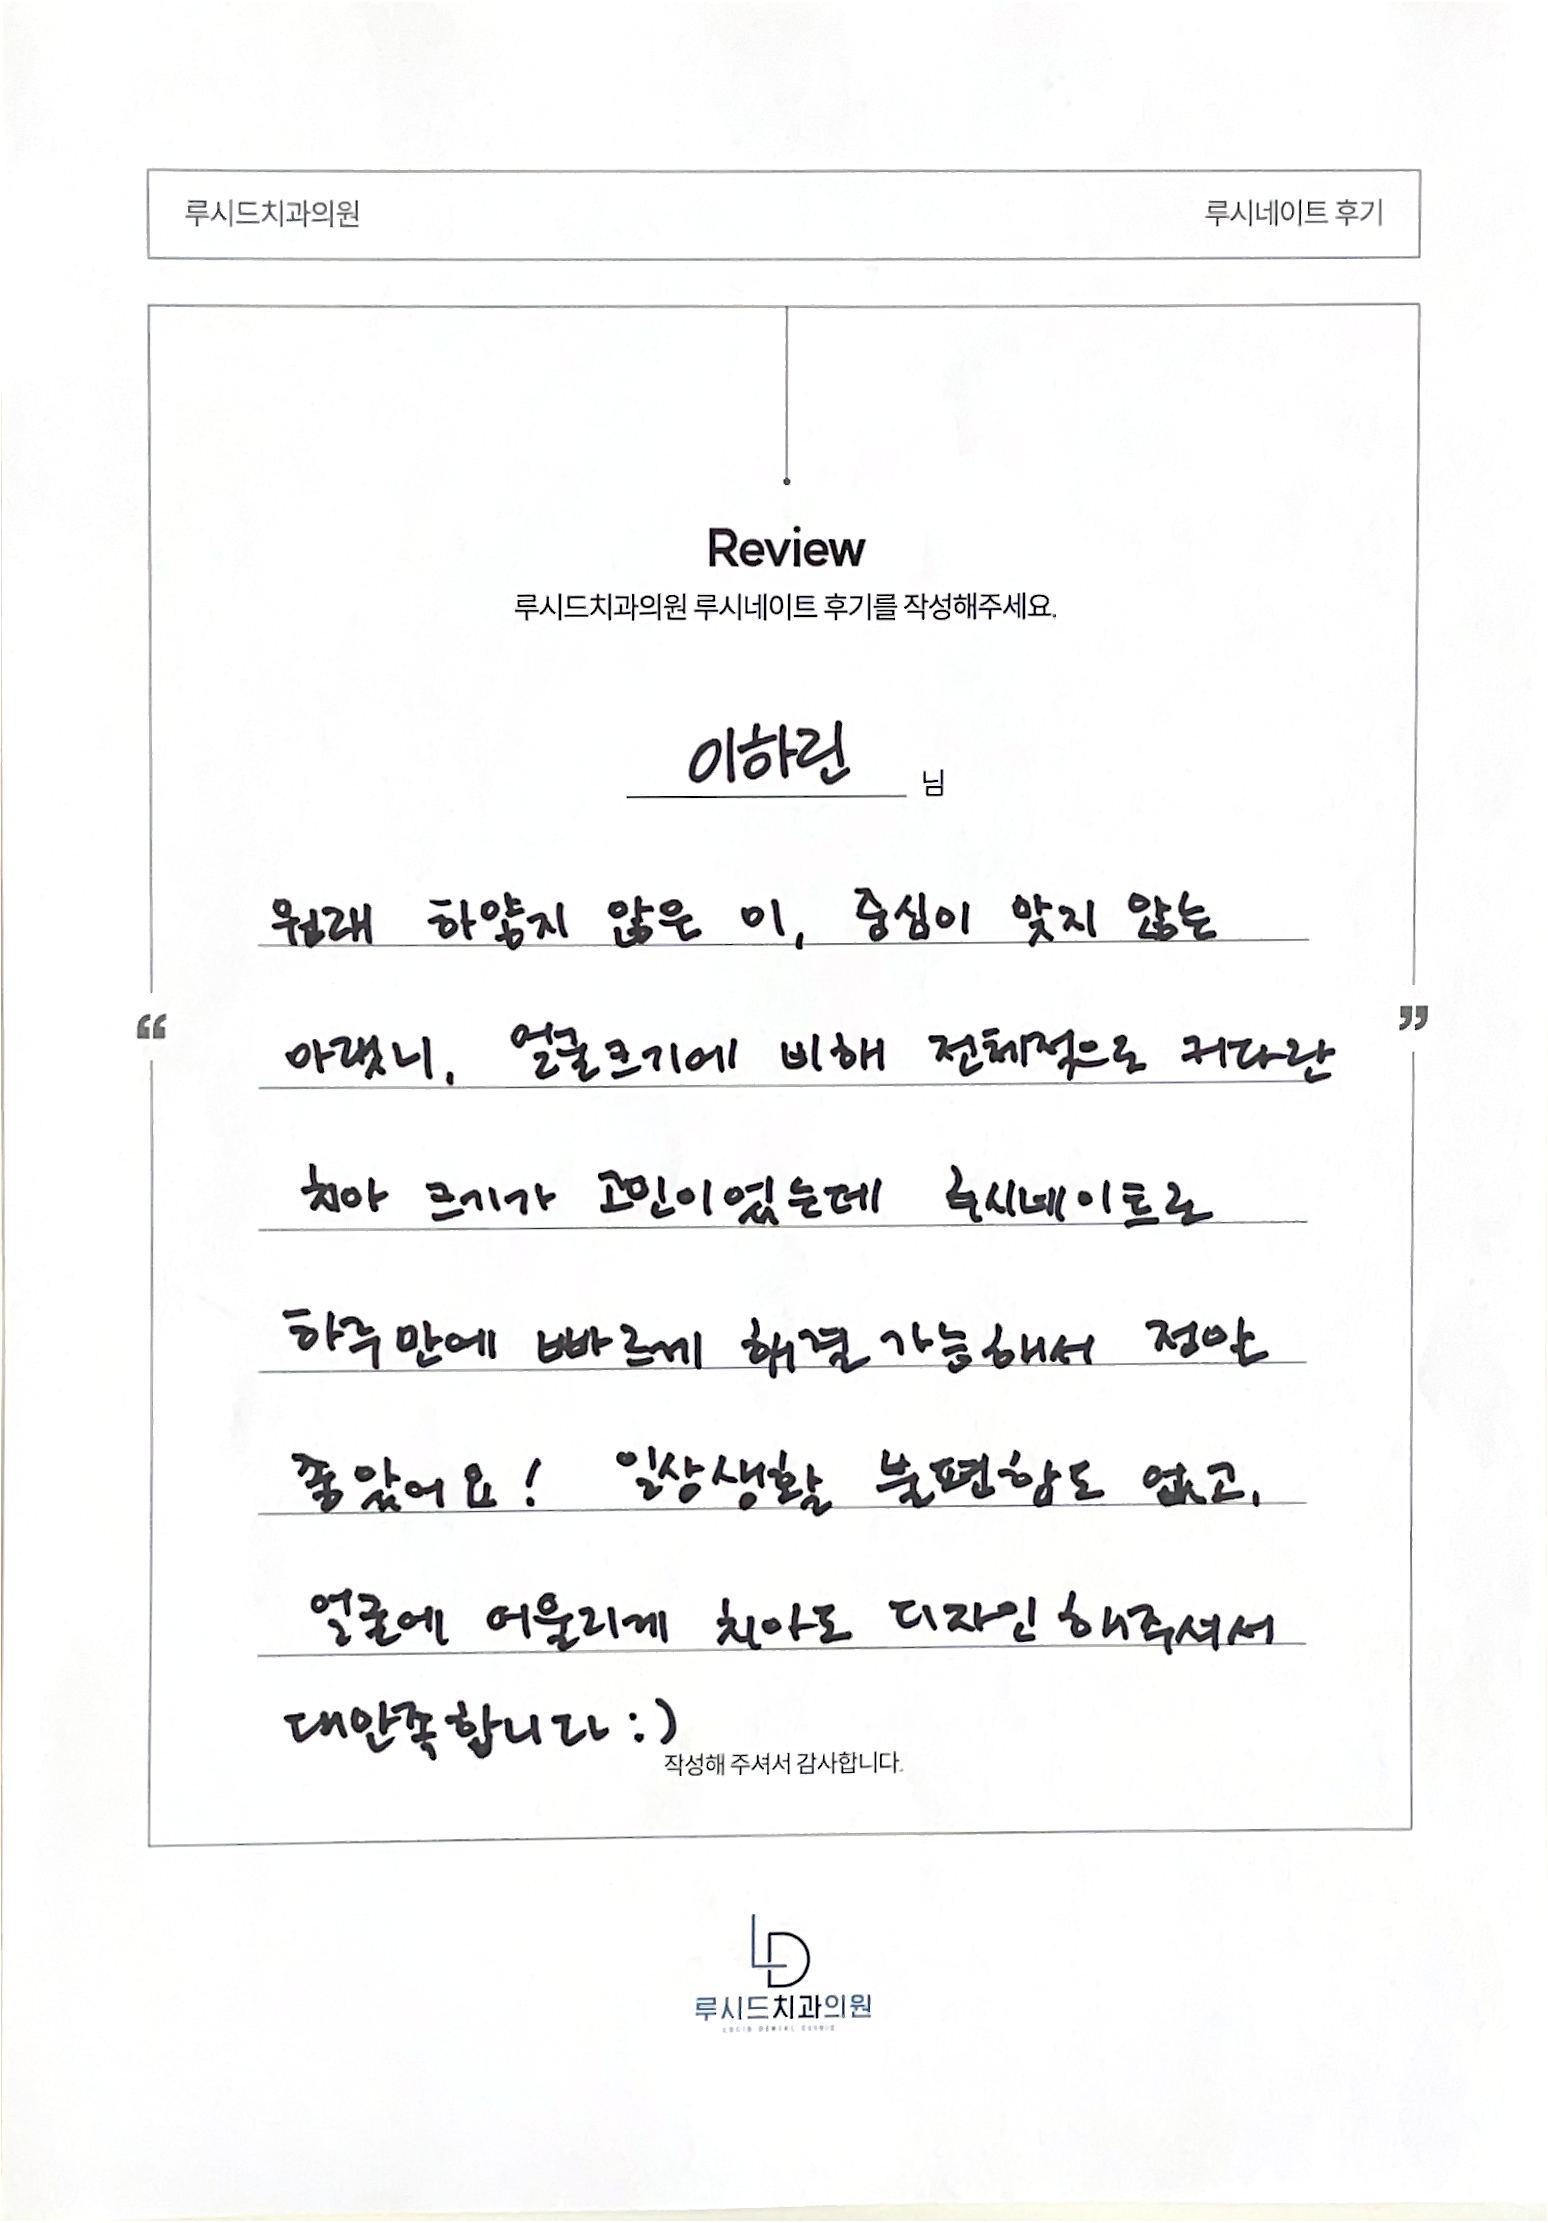 루시드치과의원
루시네이트 후기
Review
루시드치과의원 루시네이트 후기를 작성해주세요.
이하린 님
원래 하얗지 않은 이, 중심이 맞지 않는
“ ”
아랫니, 얼굴크기에 비해 전체적으로 커다란
치아 크기가 고민이었는데 루시네이트로
하루만에 빠르게 해결가능해서 정말
좋았어요! 일상생활 불편함도 없고,
얼굴에 어울리게 치아도 디자인해주셔서
대만족합니다 :)
작성해 주셔서 감사합니다.
LD
루시드치과의원
LUCID DENTAL CLINIC